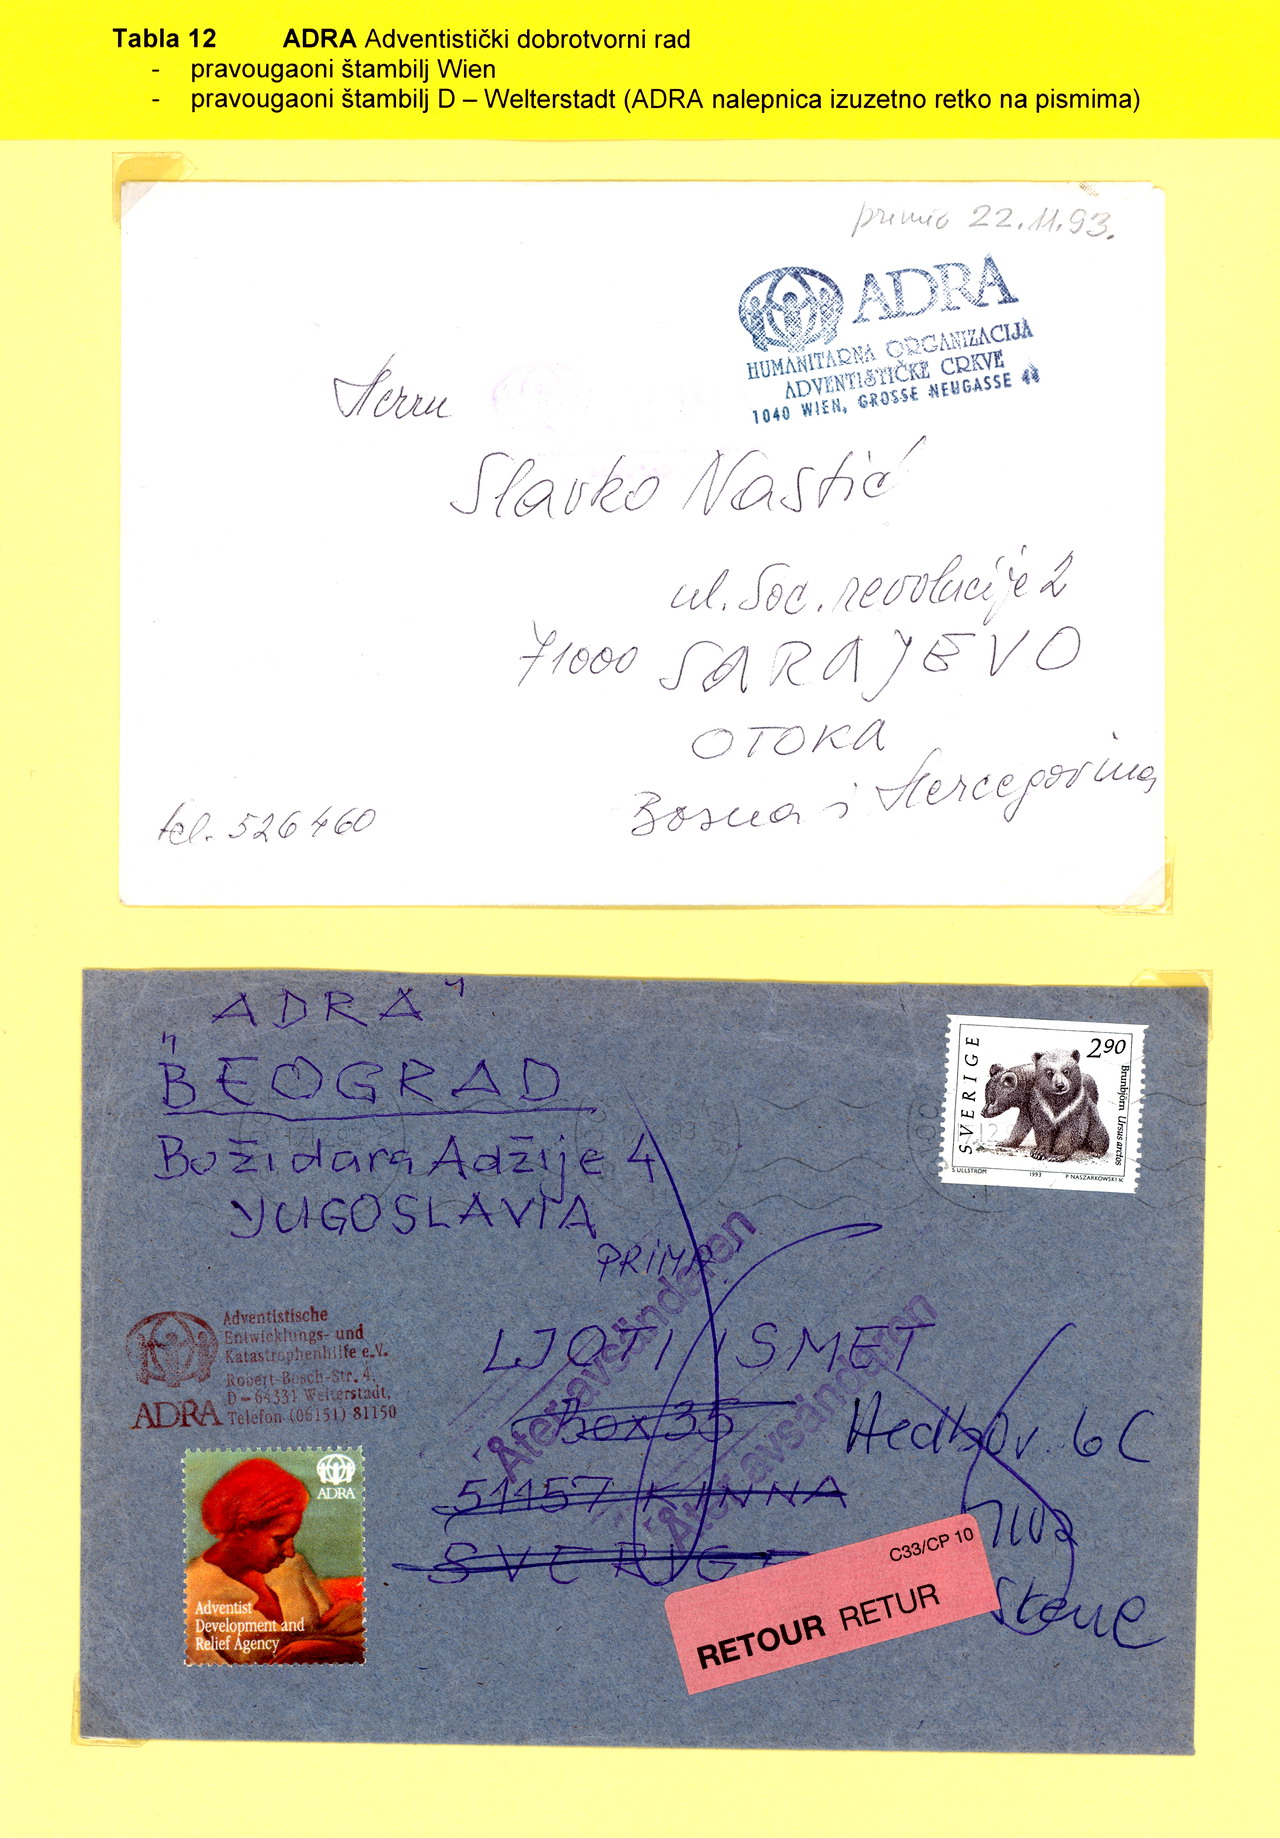 Tabla 12 ADRA Adventistički dobrotvorni rad
- pravougaoni štambilj Wien
- pravougaoni štambilj D – Welterstadt (ADRA nalepnica izuzetno retko na pismima)
primio 22.11.93.
ADRA
HUMANITARNA ORGANIZACIJA
ADVENTISTIČKE CRKVE
1040 WIEN, GROSSE NEUGASSE
Herrn
Slavko Nastić
ul. Soc. revolucije 2
71000 SARAJEVO
OTOKA
Bosna i Hercegovina
tel. 526460
„ADRA“
BEOGRAD
Božidara Adžije 4
YUGOSLAVIA
SVERIGE
2 90
Brunbjörn Ursus arctos
S. ULLSTRÖM 1993 P NASZARKOWSKI SC
PRIMA
Återt avsändaren
Återt avsändaren
Adventistische
Entwicklungs- und
Katastrophenhilfe e.V.
Robert-Bosch-Str. 4,
D-64331 Weiterstadt,
ADRA Telefon (06151) 81150
LJOTI ISMET
Box 35
51157 KINNA
SVERIGE
6C
Skene
ADRA
Adventist
Development and
Relief Agency
C33/CP 10
RETOUR RETUR